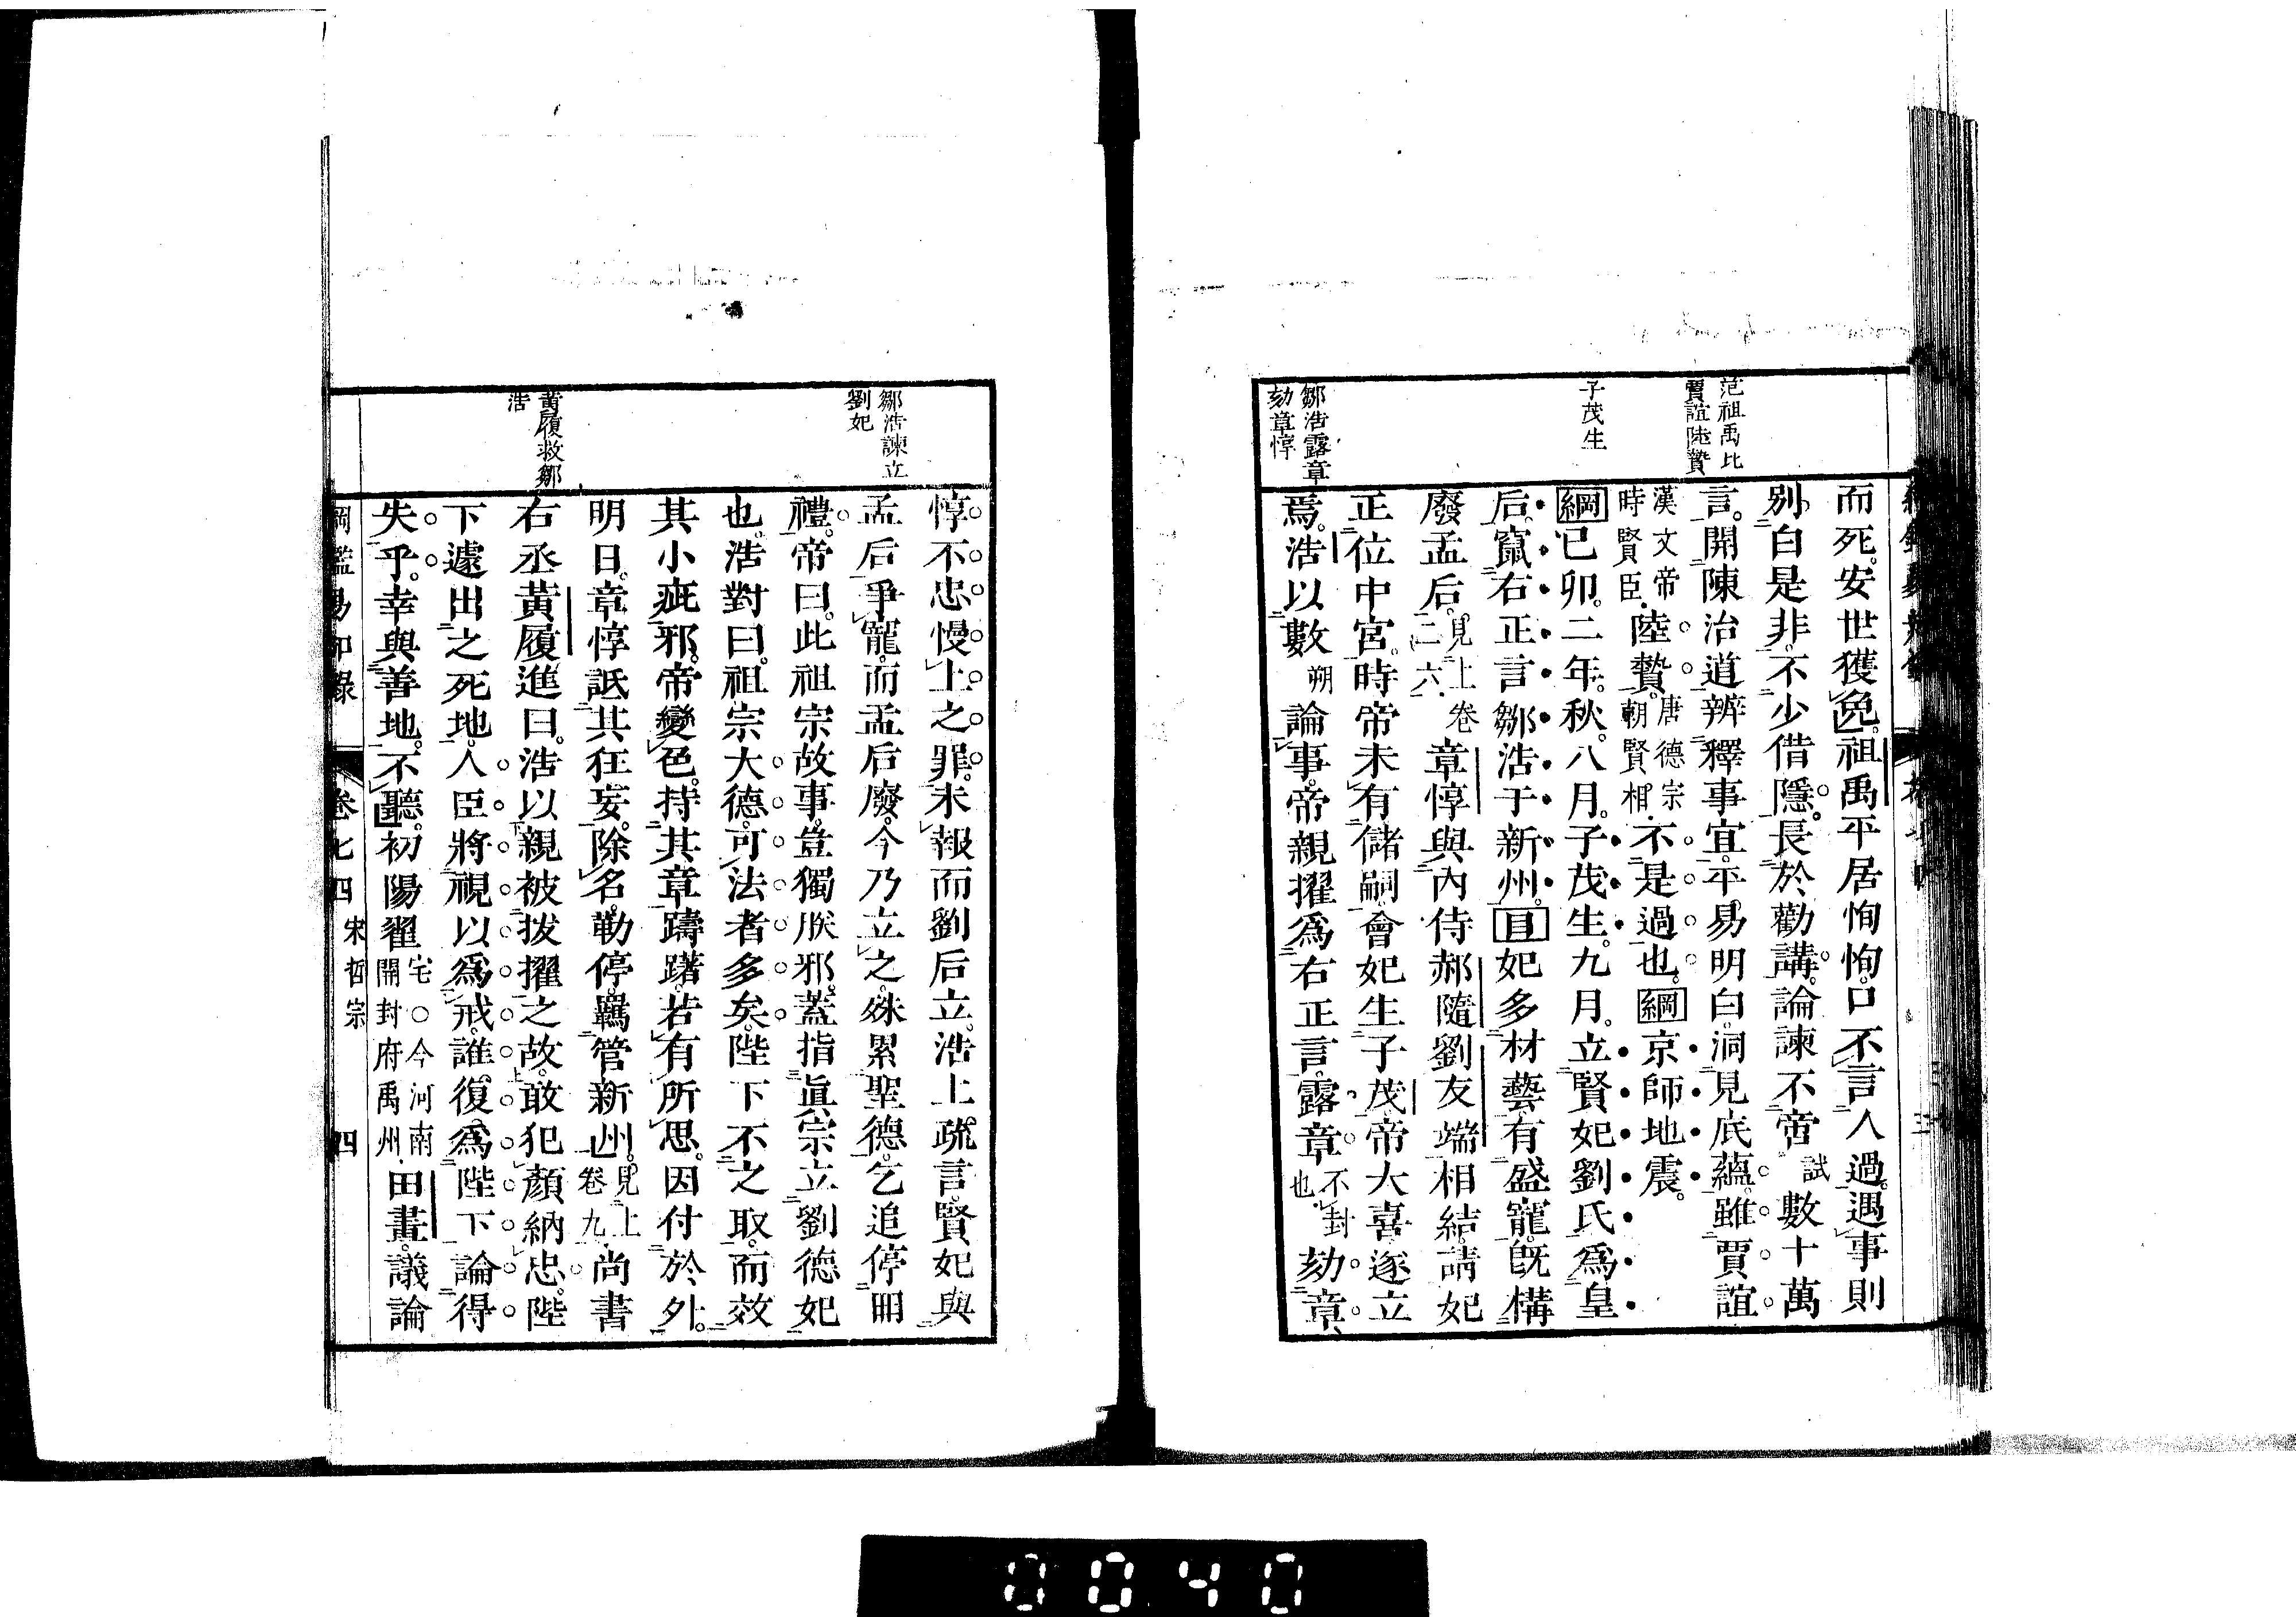 范祖禹比
賈誼陸贄
子茂生
鄒浩露章
劾章惇
而死。安世獲免。祖禹平居恂恂。口不言人過。遇事則
別白是非。不少借隱。長於勸講。論諫不啻試數十萬
言。開陳治道。辨釋事宜。平易明白。洞見底蘊。雖賈誼
漢文帝時賢臣陸贄。唐德宗朝賢相不是過也。綱京師地震。
綱己卯。二年。秋。八月。子茂生。九月。立賢妃劉氏爲皇
后。竄右正言鄒浩于新州。目妃多材藝。有盛寵。既構
廢孟后。見上卷二六章惇與內侍郝隨劉友端相結。請妃
正位中宮。時帝未有儲嗣。會妃生子茂。帝大喜。遂立
焉。浩以數朔論事。帝親擢爲右正言。露章不封也劾章
鄒浩諫立
劉妃
黃履救鄒
浩
惇不忠慢上之罪。未報而劉后立。浩上疏言。賢妃與
孟后爭寵。而孟后廢。今乃立之。殊累聖德。乞追停冊
禮。帝曰。此祖宗故事。豈獨朕邪。蓋指眞宗立劉德妃
也。浩對曰。祖宗大德。可法者多矣。陛下不之取。而效
其小疵邪。帝變色。持其章躊躇。若有所思。因付於外。
明日。章惇詆其狂妄。除名。勒停。羈管新州。見上卷九尚書
右丞黃履進曰。浩以親被拔擢之故。敢犯顏納忠。陛
下遽出之死地。人臣將視以爲戒。誰復爲陛下論得
失乎。幸與善地。不聽。初陽翟宅○今河南開封府禹州田晝。議論
綱鑑易知錄
卷七四
宋哲宗
四